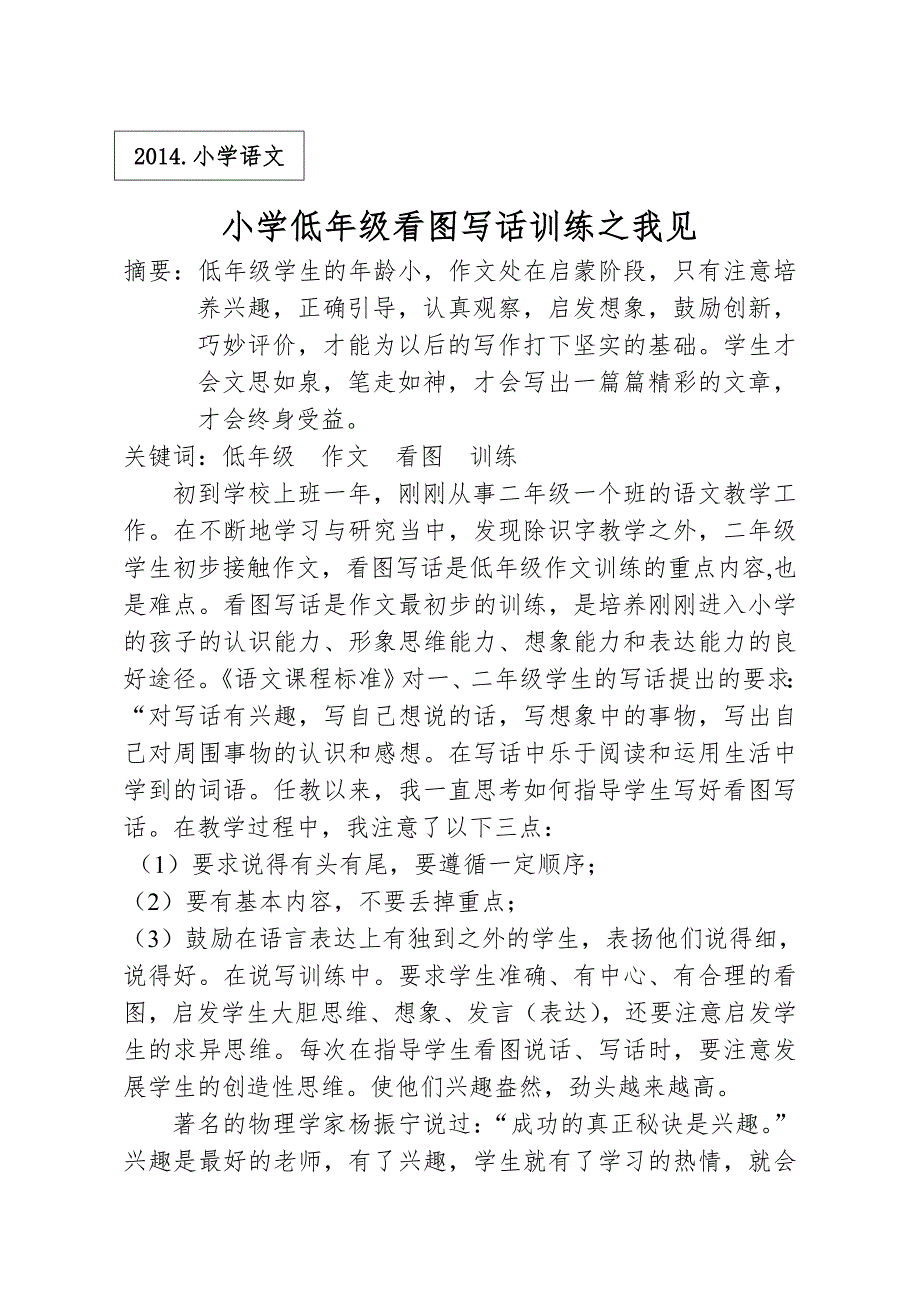 2014.小学语文
小学低年级看图写话训练之我见
摘要：低年级学生的年龄小，作文处在启蒙阶段，只有注意培
养兴趣，正确引导，认真观察，启发想象，鼓励创新，
巧妙评价，才能为以后的写作打下坚实的基础。学生才
会文思如泉，笔走如神，才会写出一篇篇精彩的文章，
才会终身受益。
关键词：低年级　作文　看图　训练
初到学校上班一年，刚刚从事二年级一个班的语文教学工
作。在不断地学习与研究当中，发现除识字教学之外，二年级
学生初步接触作文，看图写话是低年级作文训练的重点内容,也
是难点。看图写话是作文最初步的训练，是培养刚刚进入小学
的孩子的认识能力、形象思维能力、想象能力和表达能力的良
好途径。《语文课程标准》对一、二年级学生的写话提出的要求：
“对写话有兴趣，写自己想说的话，写想象中的事物，写出自
己对周围事物的认识和感想。在写话中乐于阅读和运用生活中
学到的词语。任教以来，我一直思考如何指导学生写好看图写
话。在教学过程中，我注意了以下三点：
（1）要求说得有头有尾，要遵循一定顺序；
（2）要有基本内容，不要丢掉重点；
（3）鼓励在语言表达上有独到之外的学生，表扬他们说得细，
说得好。在说写训练中。要求学生准确、有中心、有合理的看
图，启发学生大胆思维、想象、发言（表达），还要注意启发学
生的求异思维。每次在指导学生看图说话、写话时，要注意发
展学生的创造性思维。使他们兴趣盎然，劲头越来越高。
著名的物理学家杨振宁说过：“成功的真正秘诀是兴趣。”
兴趣是最好的老师，有了兴趣，学生就有了学习的热情，就会